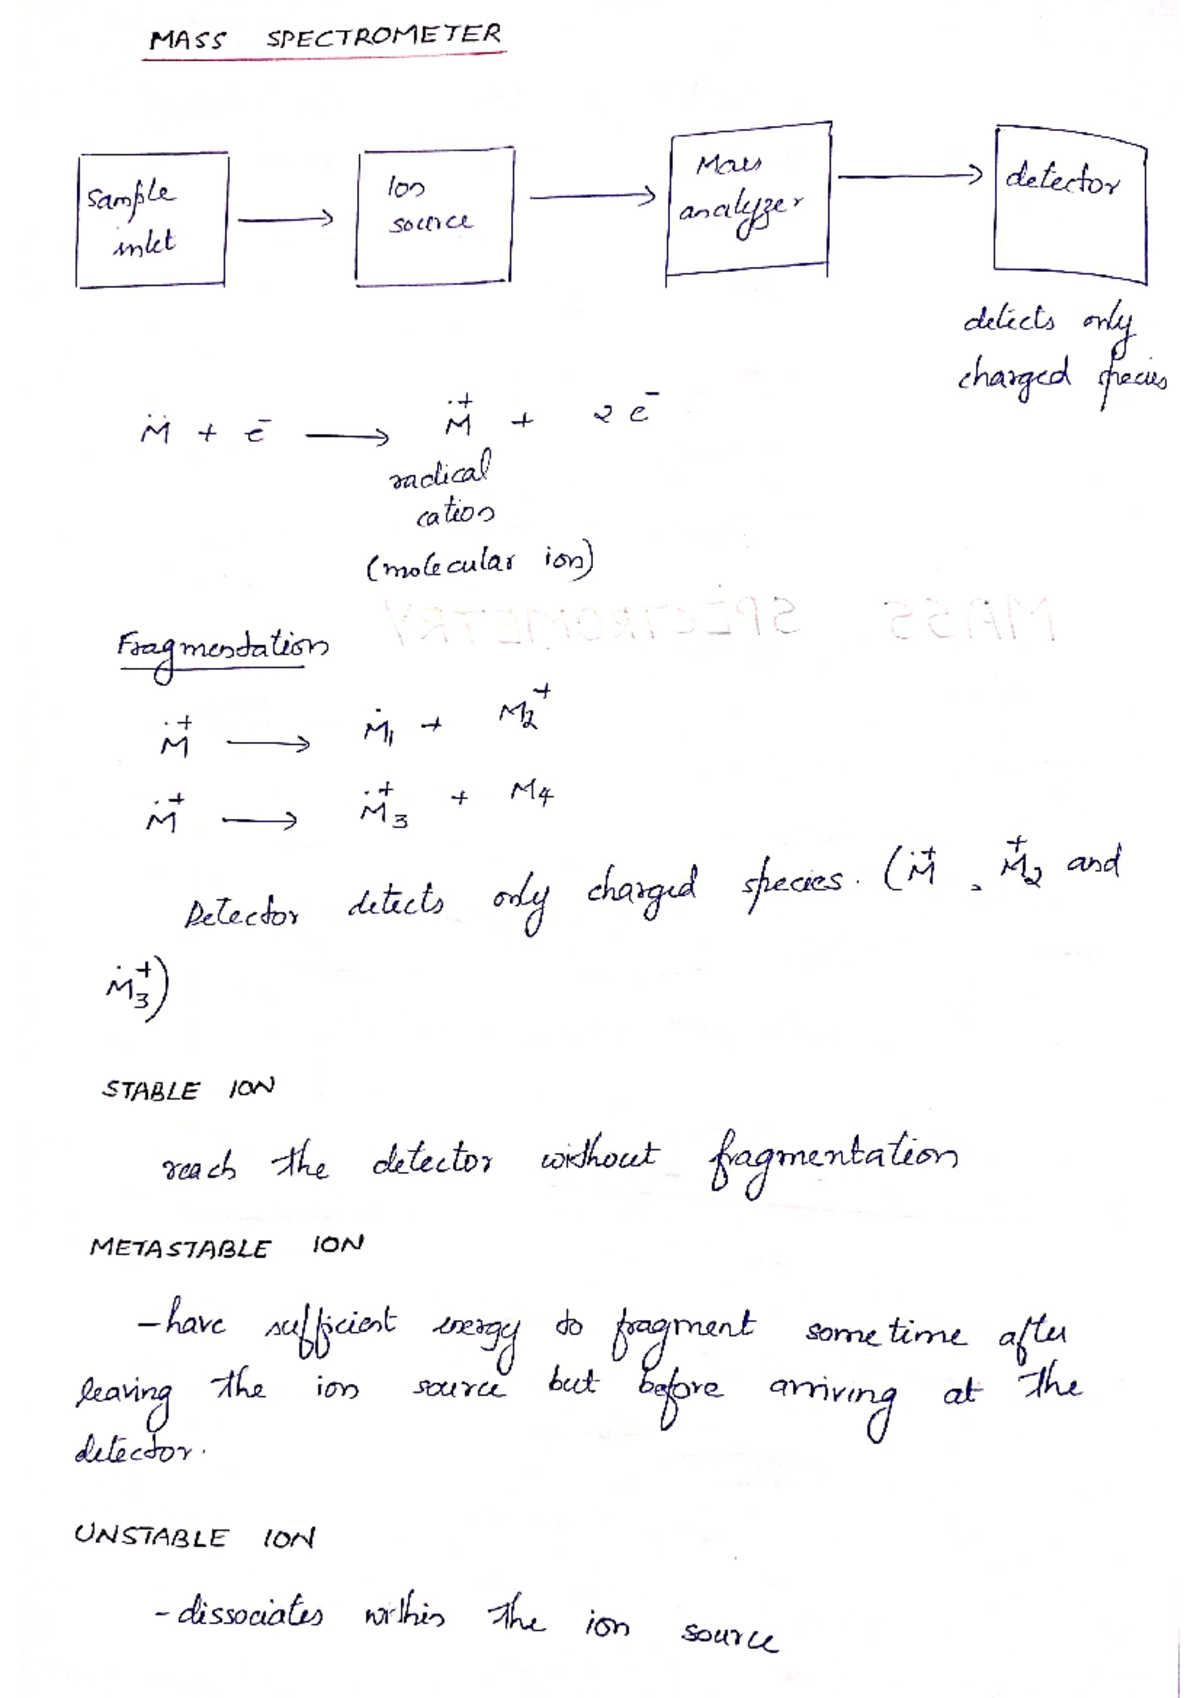 MASS SPECTROMETER
sample
inlet
Ion
source
Mass
analyzer
detector
detects only
charged species
M̈ + e⁻ → M·⁺ + 2e⁻
radical
cation
(molecular ion)
MASS SPECTROMETRY
Fragmentation
M·⁺ → Ṁ₁ + M₂⁺
M·⁺ → M₃·⁺ + M₄
Detector detects only charged species. (M·⁺, M₂⁺ and
M₃·⁺)
STABLE ION
reach the detector without fragmentation
METASTABLE ION
- have sufficient energy to fragment sometime after
leaving the ion source but before arriving at the
detector.
UNSTABLE ION
- dissociates within the ion source